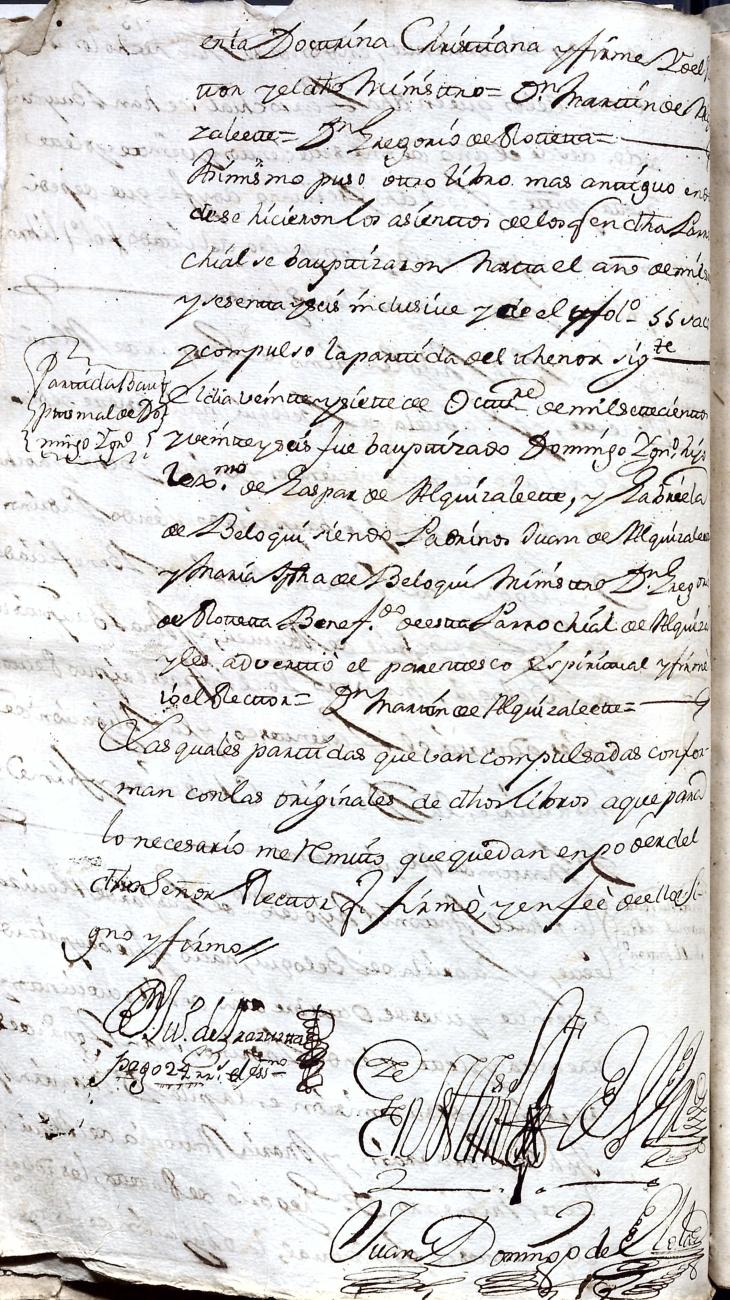 en la Doctrina Christiana y firme Yo el
tior y el dho Ministro= Dn. Martin de
zaleette= Dn. Gregorio de Rotetta=
Asimismo puso otro libro mas antiguo en
de se hicieron los asienttos de los qe en dha Parro
chial se bauptizaron hasta el año de mil
y sesenta y seis inclusive y de el y fol.o 55 saq
y compulso la partida del thenor sigte
Partida Bau
ptismal de Do
mingo Ygn.o
El dia veintte y siette de Octtu.re de mil setecientos
y veintte y seis fue bauptizado Domingo Ygn.o hijo
lex.mo de Gaspar de Alquizaleette, y Gabriela
de Beloqui siendo Padrinos Juan de Alquizalee
y Maria Jpha de Beloqui Ministtro Dn. Grego
de Rotetta Benef.do de esta Parrochial de Alquiza
y les advertio el parentesco Espiritual y firme
io el Rector= Dn. Martin de Alquizaleette=
Las quales partidas que van compulsadas confor
man con las originales de dhos libros a que para
lo necesario me remito, que quedan en poder del
dho Señor Rector q. firmò, y en feè de ello si
gno y firmo//
Dn. Ju.o de
pego 24
En testim.o de Verdad
Juan Domingo de